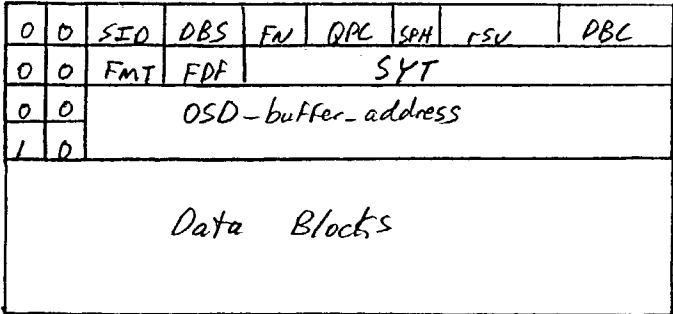 0 0 SID DBS FN QPC SPH rsv DBC
0 0 FMT FDF SYT
0 0 OSD-buffer_address
1 0
Data Blocks